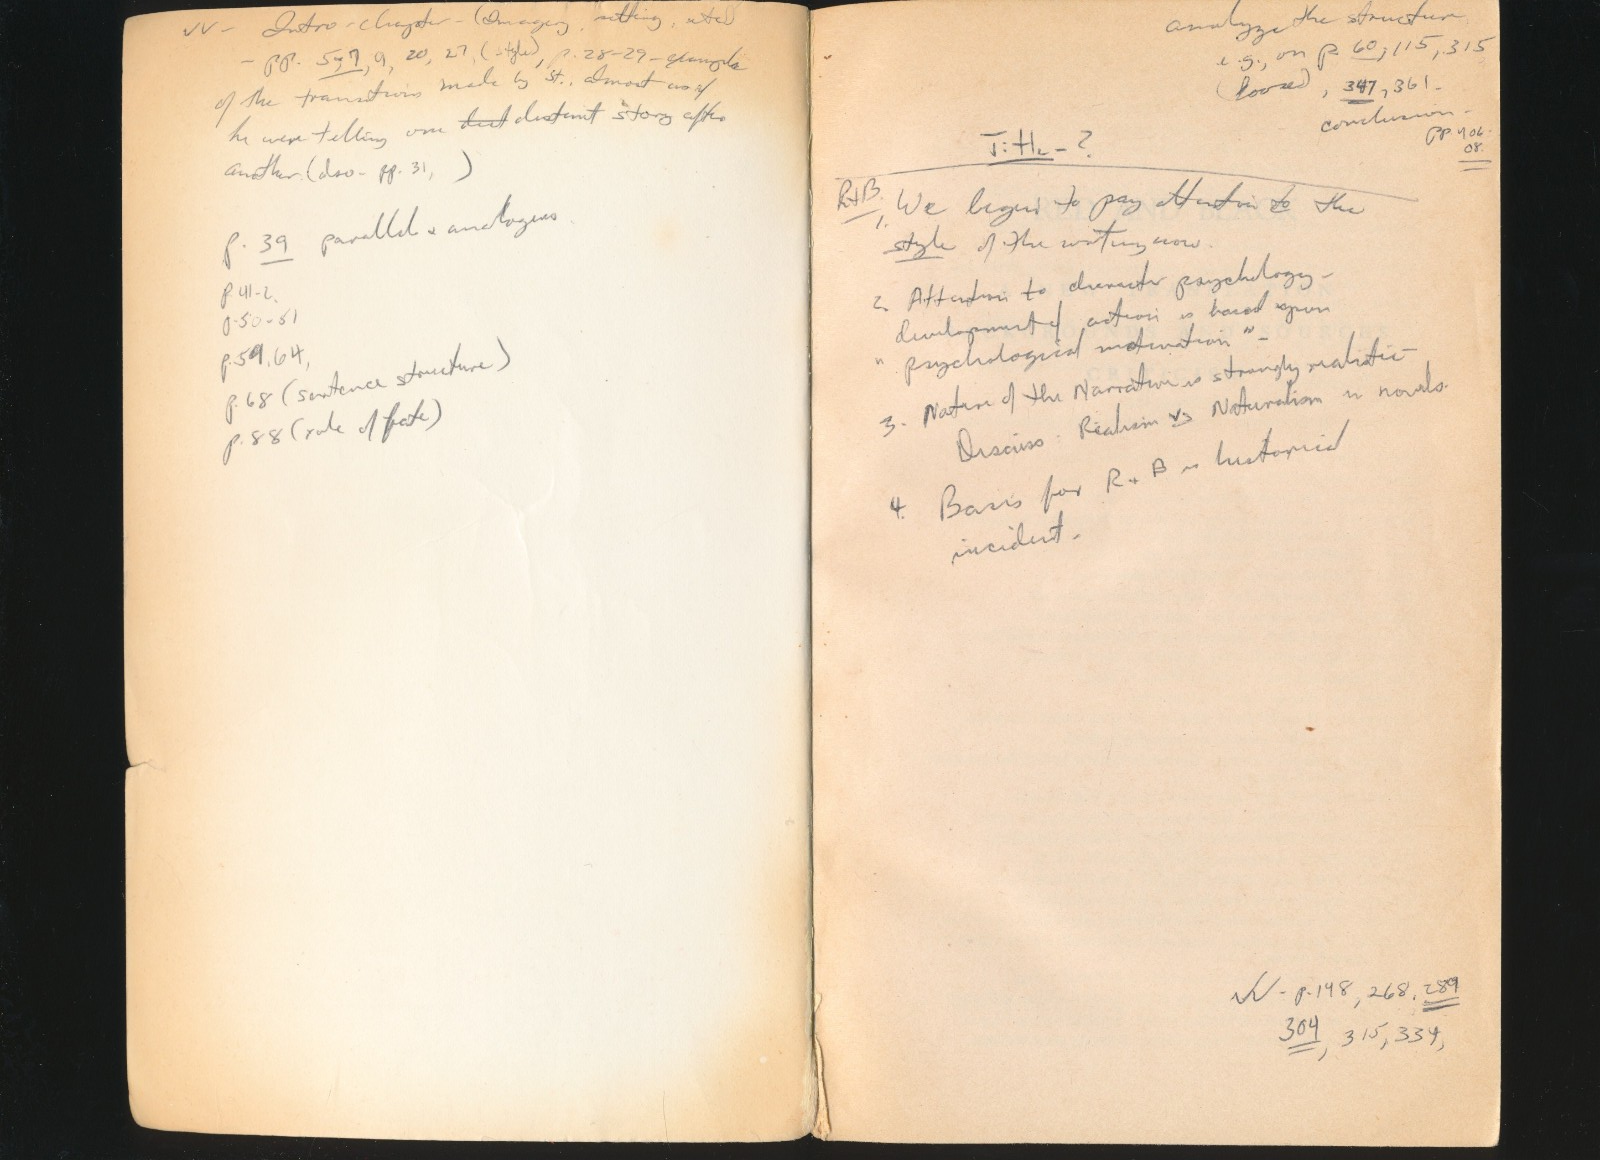 √√ - Intro-chapter - (Imagery, setting,
- pp. 5, 7, 9, 20, 27, (style), p. 28-29 - example
of the transitions made by St., almost as if
he were telling one dist distinct story after
another. (also - pp. 31, )
p. 39 parallels & analogies
p. 41-2.
p. 50-51
p. 59, 64,
p. 68 (sentence structure)
p. 88 (role of fate)
analyze the structure
e.g., on p. 60, 115, 315
347, 361 -
conclusion -
pp 406-
08.
Title - ?
R+B.
1. We begin to pay attention to the
style of the writing now.
2. Attention to character psychology -
development of action is based upon
"psychological motivation" -
3. Nature of the Narrative is strongly realistic -
Discuss: Realism vs Naturalism in novels.
4. Basis for R + B is historical
incident.
√√ - p. 148, 268, 289
304, 315, 334,